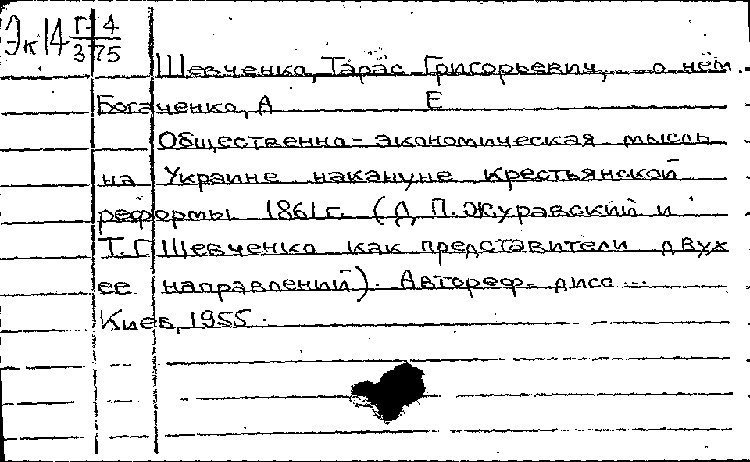 Эк14 Г-4
375
Шевченко, Тарас Григорьевич, о нём
Богаченко, А Е
Общественно-экономическая мысль
на Украине накануне крестьянской
реформы 1861 г. (Д. П. Журавский и
Т. Г. Шевченко как представители двух
ее направлений). Автореф. дисс...
Киев, 1955.